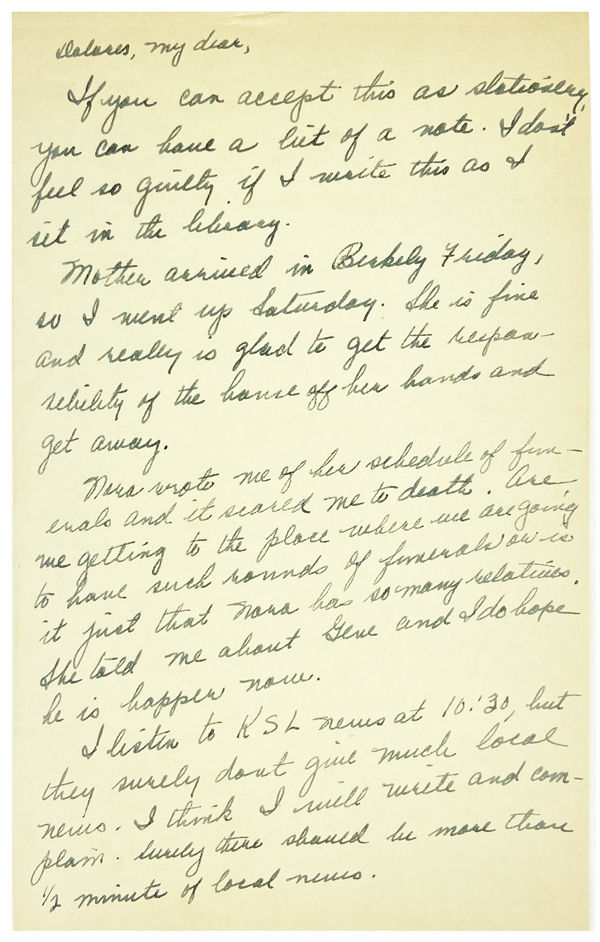 Dolores, my dear,
If you can accept this as stationery,
you can have a bit of a note. I don't
feel so guilty if I write this as I
sit in the library.
Mother arrived in Berkely Friday,
so I went up Saturday. She is fine
and really is glad to get the respon-
sibility of the house off her hands and
get away.
Nora wrote me of her schedule of fun-
erals and it scared me to death. Are
we getting to the place where we are going
to have such rounds of funerals or is
it just that Nora has so many relatives.
She told me about Gene and I do hope
he is happer now.
I listen to KSL news at 10:30, but
they surely dont give much local
news. I think I will write and com-
plain. Surely there should be more than
1/2 minute of local news.